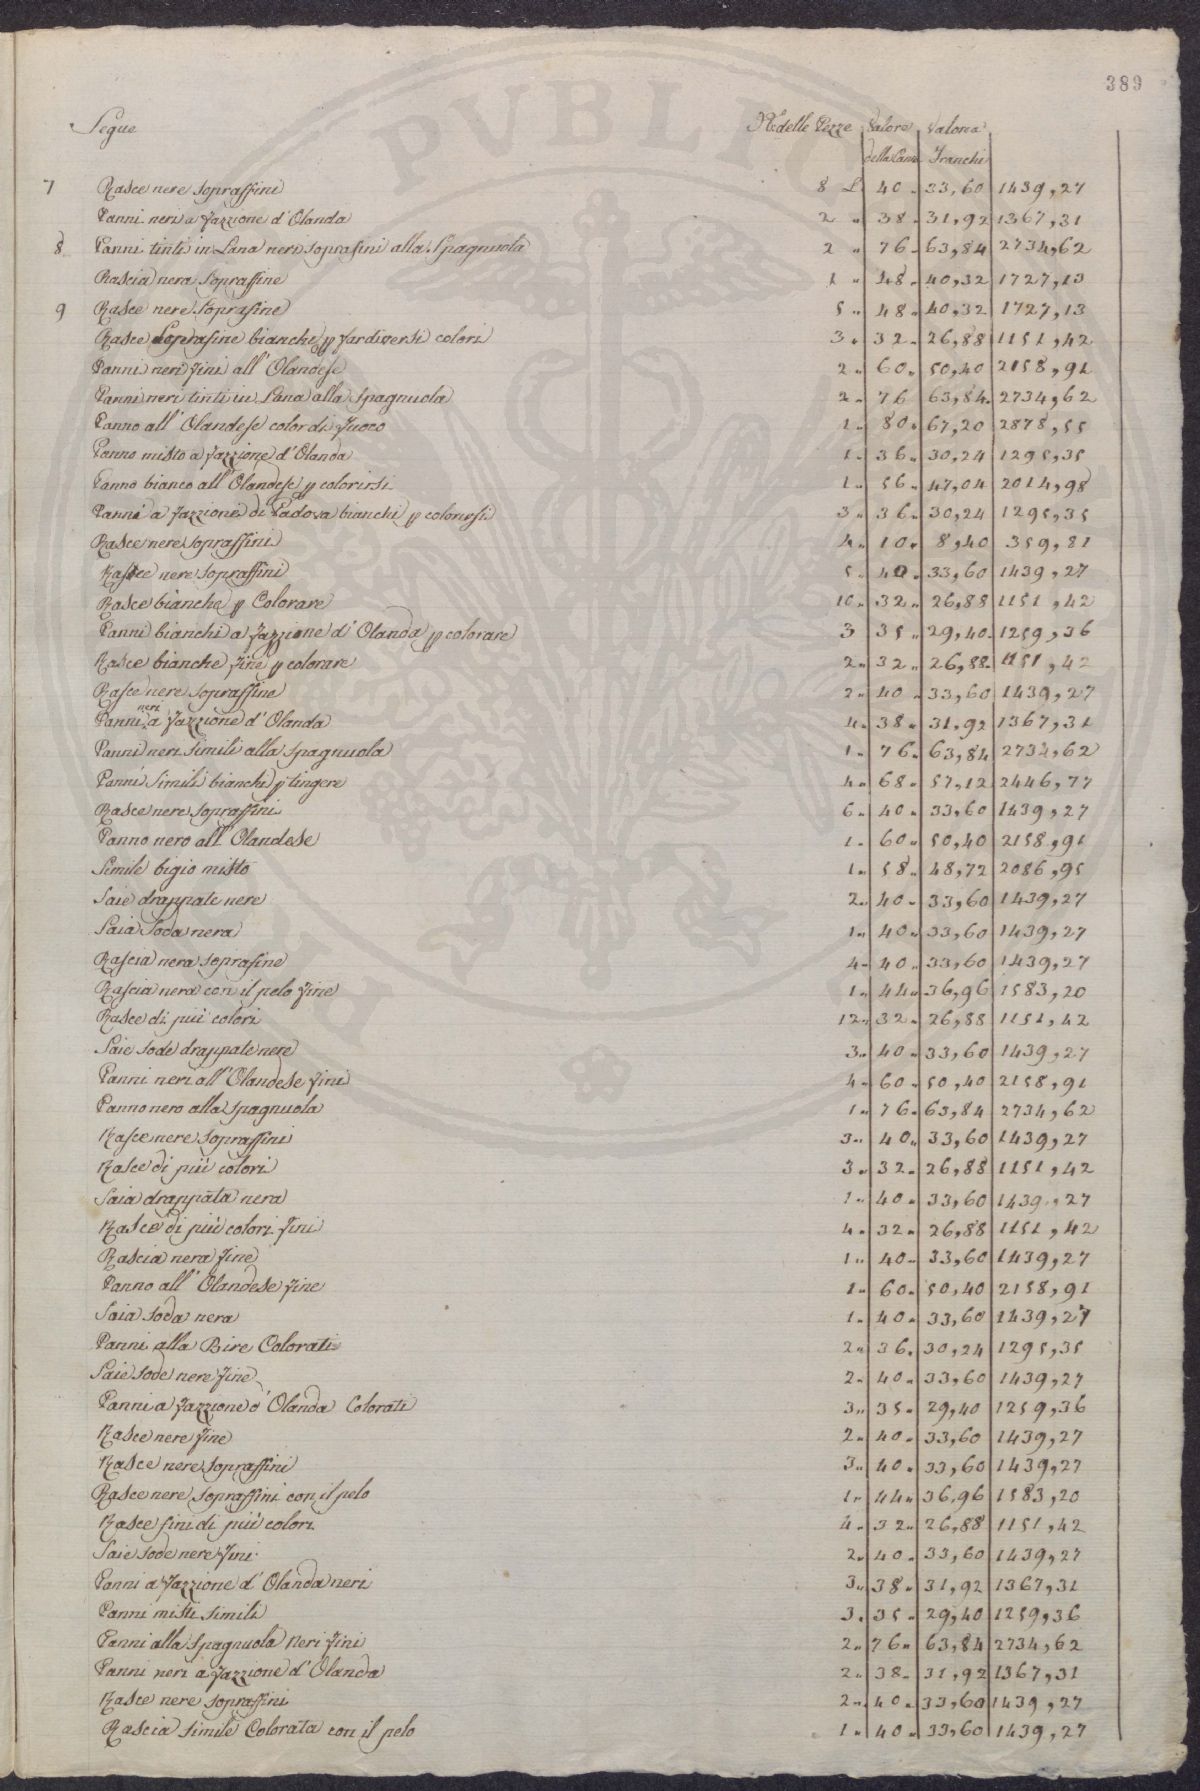 389
Segue N.º delle Pezze Valore Valore
della Canna Franchi
7 Rasce nere Sopraffini 8 L. 40 " 33,60 1439,27
Panni neri a fazzione d'Olanda 2 " 38 " 31,92 1367,31
8 Panni tinti in Lana neri soprafini alla Spagnuola 2 " 76 " 63,84 2734,62
Rascia nera Sopraffine 1 " 48 " 40,32 1727,13
9 Rasce nere Soprafine 5 " 48 " 40,32 1727,13
Rasce Soprafine bianche p far diversi colori 3 " 32 " 26,88 1151,42
Panni neri fini all'Olandese 2 " 60 " 50,40 2158,91
Panni neri tinti in Lana alla Spagnuola 2 " 76 63,84 2734,62
Panno all'Olandese color di fuoco 1 " 80 " 67,20 2878,55
Panno misto a fazzione d'Olanda 1 " 36 " 30,24 1295,35
Panno bianco all'Olandese p colorirsi 1 " 56 " 47,04 2014,98
Panni a fazzione di Padova bianchi p colorirsi 3 " 36 " 30,24 1295,35
Rasce nere Sopraffini 4 " 10 " 8,40 359,81
Rasce nere Sopraffini 5 " 40 " 33,60 1439,27
Rasce bianche p Colorare 10 " 32 " 26,88 1151,42
Panni bianchi a fazzione d'Olanda p colorare 3 35 " 29,40 1259,36
Rasce bianche fine p colorare 2 " 32 " 26,88 1151,42
Rasce nere Sopraffine 2 " 40 " 33,60 1439,27
Panni neri a fazzione d'Olanda 4 " 38 " 31,92 1367,31
Panni neri simili alla Spagnuola 1 " 76 " 63,84 2734,62
Panni Simili bianchi p tingere 4 " 68 " 57,12 2446,77
Rasce nere Sopraffini 6 " 40 " 33,60 1439,27
Panno nero all'Olandese 1 " 60 " 50,40 2158,91
Simile bigio misto 1 " 58 " 48,72 2086,95
Saie drappate nere 2 " 40 " 33,60 1439,27
Saia Soda nera 1 " 40 " 33,60 1439,27
Rascia nera Soprafine 4 " 40 " 33,60 1439,27
Rascia nera con il pelo fine 1 " 44 " 36,96 1583,20
Rasce di più colori 12 " 32 " 26,88 1151,42
Saie Sode drappate nere 3 " 40 " 33,60 1439,27
Panni neri all'Olandese fini 4 " 60 " 50,40 2158,91
Panno nero alla Spagnuola 1 " 76 " 63,84 2734,62
Rasce nere Sopraffini 3 " 40 " 33,60 1439,27
Rasce di più colori 3 " 32 " 26,88 1151,42
Saia drappata nera 1 " 40 " 33,60 1439,27
Rasce di più colori fini 4 " 32 " 26,88 1151,42
Rascia nera fine 1 " 40 " 33,60 1439,27
Panno all'Olandese fine 1 " 60 " 50,40 2158,91
Saia Soda nera 1 " 40 " 33,60 1439,27
Panni alla Bire Colorati 2 " 36 " 30,24 1295,35
Saie Sode nere fine 2 " 40 " 33,60 1439,27
Panni a fazzione d'Olanda Colorati 3 " 35 " 29,40 1259,36
Rasce nere fine 2 " 40 " 33,60 1439,27
Rasce nere Sopraffini 3 " 40 " 33,60 1439,27
Rasce nere Sopraffini con il pelo 1 " 44 " 36,96 1583,20
Rasce fini di più colori 4 " 32 " 26,88 1151,42
Saie Sode nere fini 2 " 40 " 33,60 1439,27
Panni a fazzione d'Olanda neri 3 " 38 " 31,92 1367,31
Panni misti simili 3 " 35 " 29,40 1259,36
Panni alla Spagnuola Neri fini 2 " 76 " 63,84 2734,62
Panni neri a fazzione d'Olanda 2 " 38 " 31,92 1367,31
Rasce nere Sopraffini 2 " 40 " 33,60 1439,27
Rascia simile Colorata con il pelo 1 " 40 " 33,60 1439,27